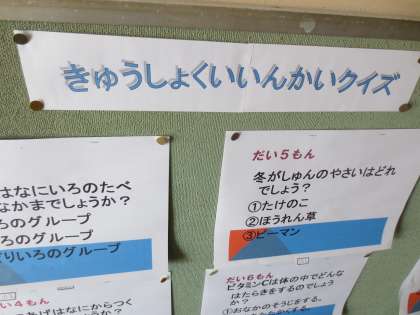 きゅうしょくいいんかいクイズ
はなにいろのたべ
なかまでしょうか?
ろのグループ
ろのグループ
りいろのグループ
だい5もん
冬がしゅんのやさいはどれ
でしょう?
①たけのこ
②ほうれん草
③ピーマン
4もん
あげはなにからつく
だい6もん
ビタミンCは体の中でどんな
はたらきをするのでしょう
か?
①おなかのそうじをする。